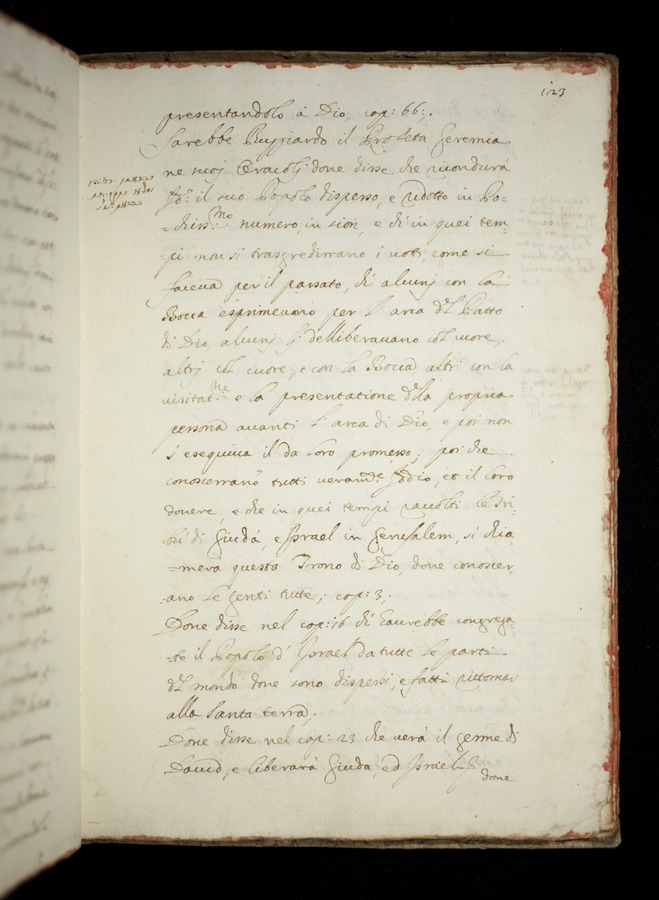 123
presentandolo à Dio, cap: 66:.
Sarebbe Buggiardo il Profeta Geremia
ne suoj Oracolj done disse che ricondurà
Id.º il suo Popolo disperso, e ridotto in Po-
-chiss:mo numero, in sion, e ch'in quei tem-
-pi non si trasgredirrano i voti, come si
faceva per il passato, ch'alcunj con la
Bocca esprimevano per l'arca del Patto
di Dio, alcunj lo delliberavano col cuore,
altrj col cuore, e con la Bocca altri con la
visitat:ne e la presentatione della propria
persona avanti l'arca di Dio, e poi non
s'eseguiva il da loro promesso; poi che
conoscerrano tutti veramte Iddio, et il loro
dovere, e che in quei tempi raccolti le tri-
-bù di Giudà, e Israel in Gerusalem, si chia-
-merà questa Trono di Dio, done conoscer-
-ano le genti tutte; cap: 3.
Done disse nel cap: 16 ch'haurebbe congrega-
-to il Popolo d'Israel da tutte le parti
del mondo done sono dispersi, e fatti rittornar
alla Santa terra.
Done disse nel cap: 23 che verà il germe di
David, e liberarà Giuda, ed Israel
done